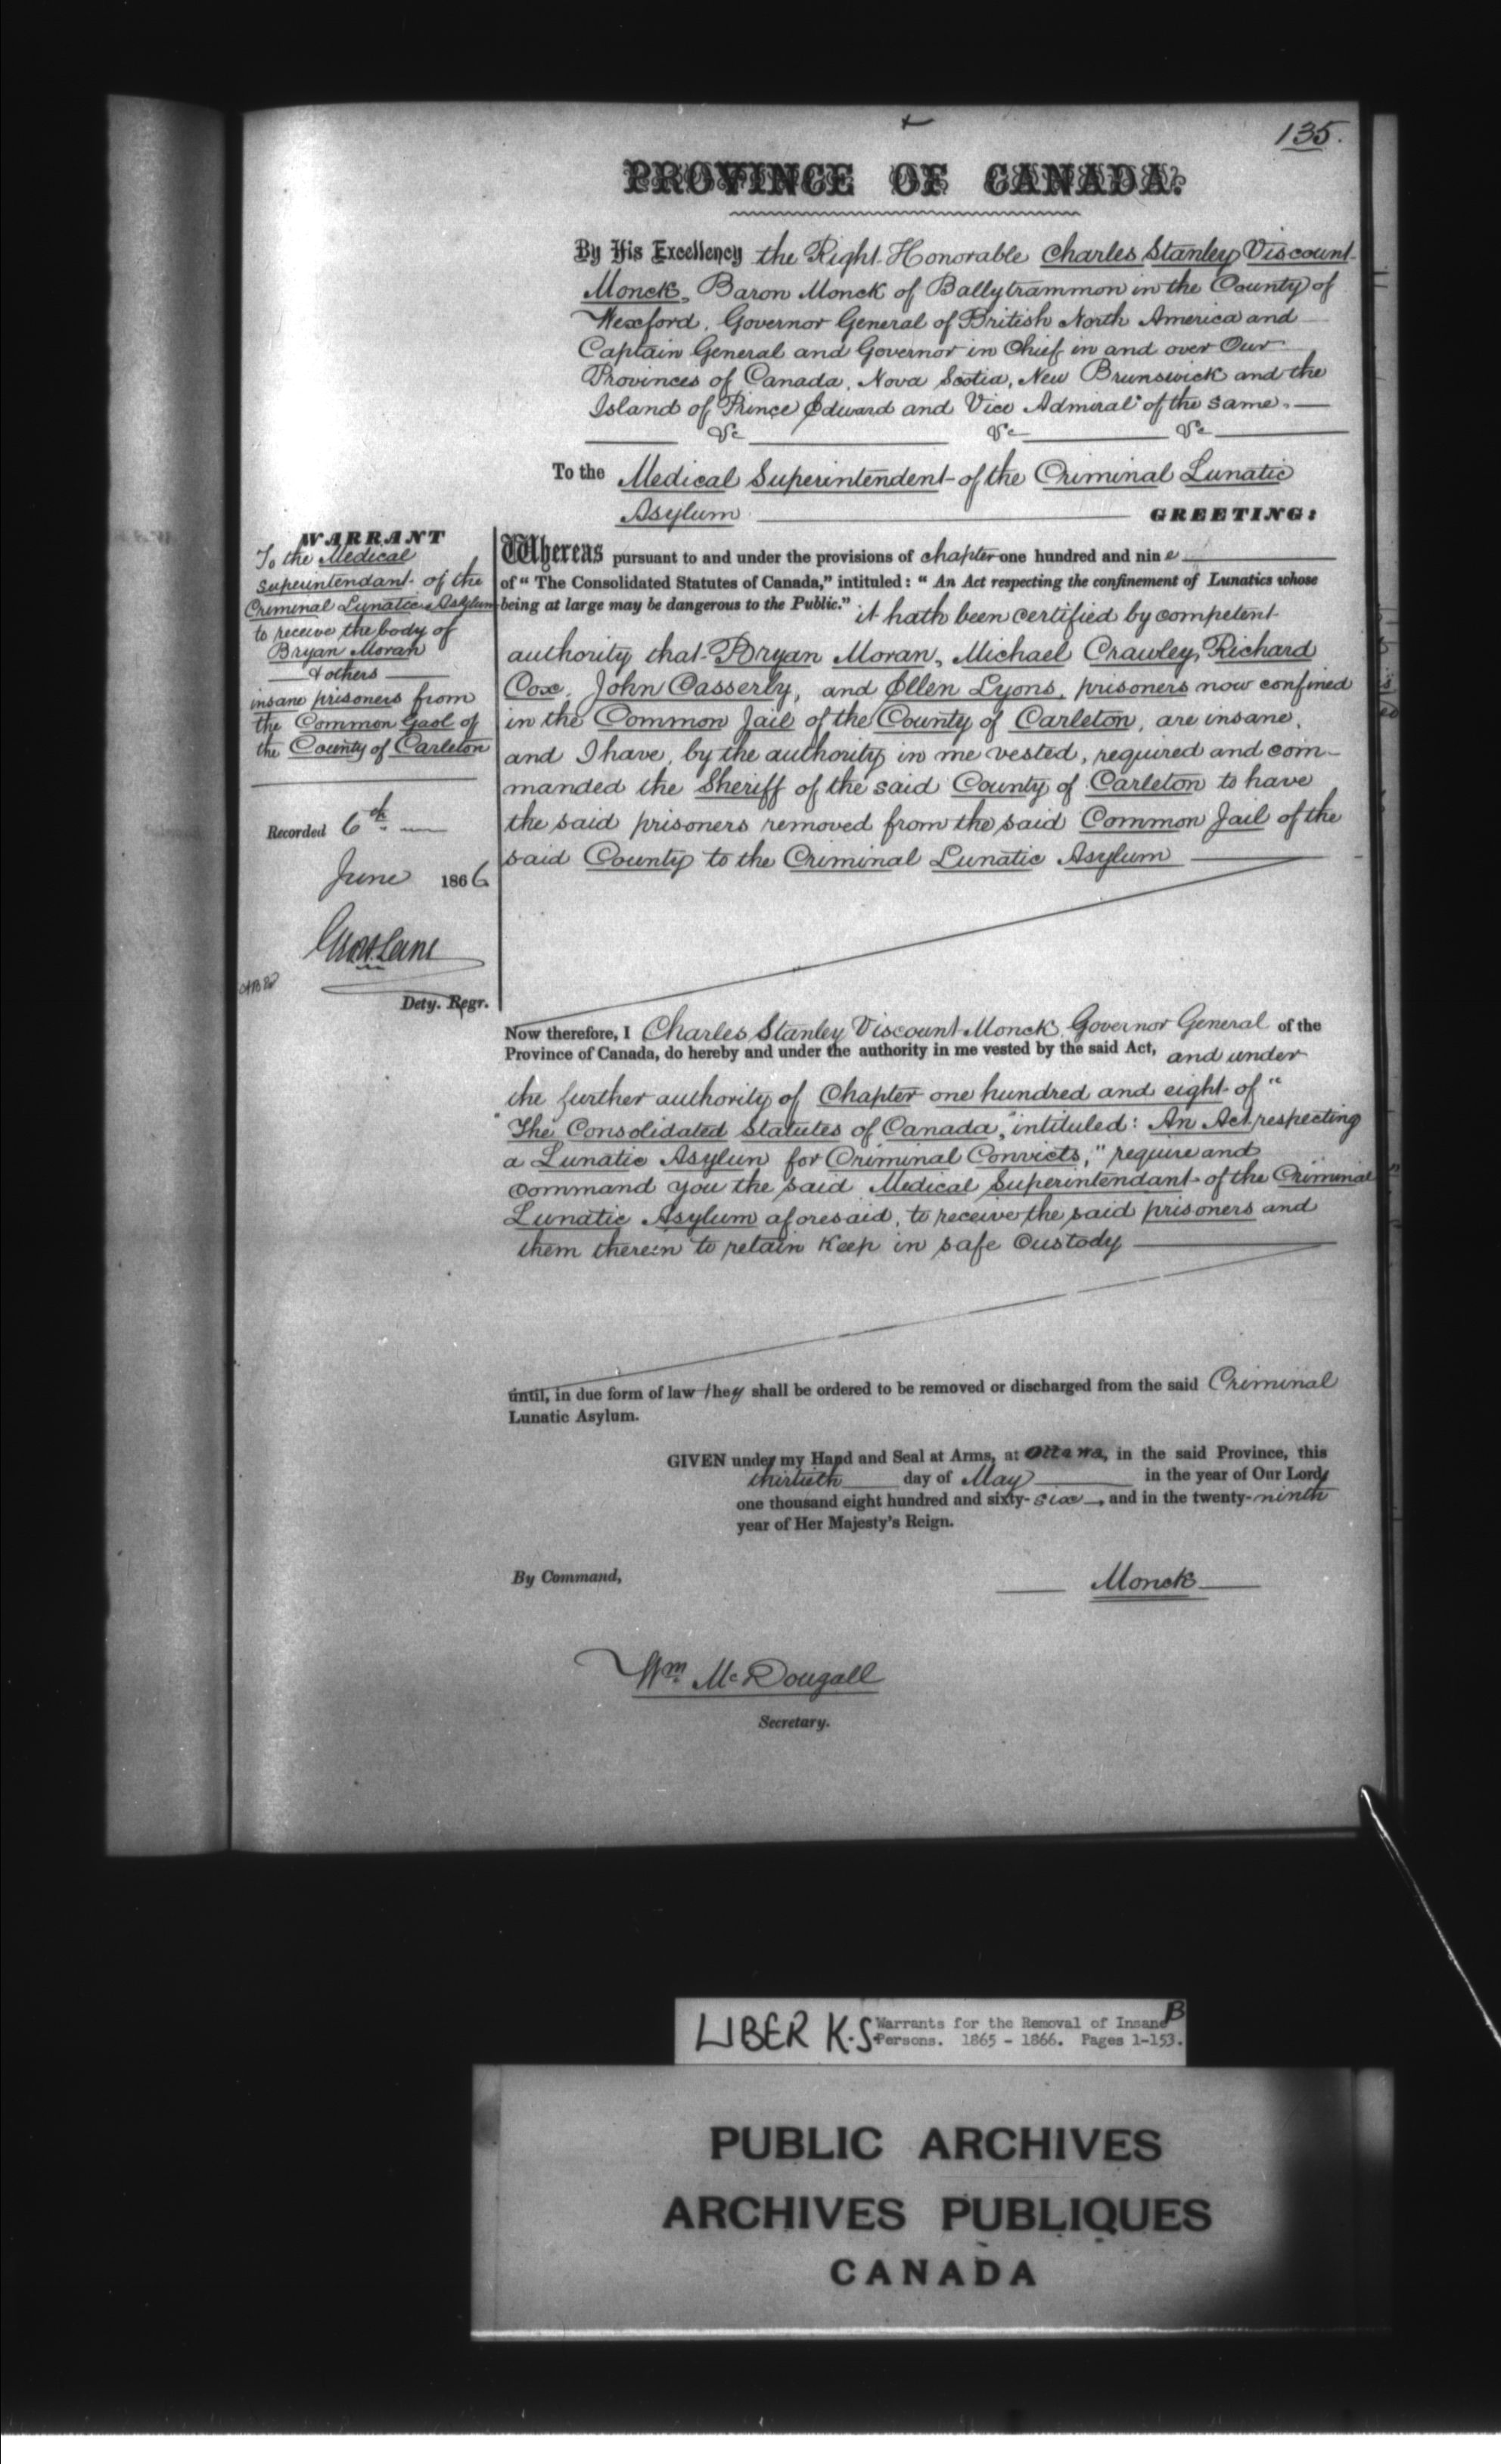 135.
PROVINCE OF CANADA.
By His Excellency the Right Honorable Charles Stanley Viscount
Monck, Baron Monck of Ballytrammon in the County of
Wexford, Governor General of British North America and
Captain General and Governor in Chief in and over Our
Provinces of Canada, Nova Scotia, New Brunswick and the
Island of Prince Edward and Vice Admiral of the same.
&c &c &c
To the Medical Superintendent of the Criminal Lunatic
Asylum GREETING:
WARRANT
To the Medical
Superintendant of the
Criminal Lunatic Asylum
to receive the body of
Bryan Moran
& others
insane prisoners from
the Common Gaol of
the County of Carleton
Recorded 6th
June 1866
Dety. Regr.
Whereas pursuant to and under the provisions of chapter one hundred and nine
of "The Consolidated Statutes of Canada," intituled: "An Act respecting the confinement of Lunatics whose
being at large may be dangerous to the Public." it hath been certified by competent
authority that Bryan Moran, Michael Crawley, Richard
Cox, John Casserly, and Ellen Lyons, prisoners now confined
in the Common Jail of the County of Carleton, are insane,
and I have, by the authority in me vested, required and com-
manded the Sheriff of the said County of Carleton to have
the said prisoners removed from the said Common Jail of the
said County to the Criminal Lunatic Asylum
Now therefore, I Charles Stanley Viscount Monck, Governor General of the
Province of Canada, do hereby and under the authority in me vested by the said Act, and under
the further authority of Chapter one hundred and eight of "
"The Consolidated Statutes of Canada," intituled: An Act respecting
a Lunatic Asylun for Criminal Convicts," require and
command you the said Medical Superintendant of the Criminal
Lunatic Asylum aforesaid, to receive the said prisoners and
them therein to retain Keep in safe Custody
until, in due form of law they shall be ordered to be removed or discharged from the said Criminal
Lunatic Asylum.
GIVEN under my Hand and Seal at Arms, at Ottawa, in the said Province, this
thirtieth day of May in the year of Our Lord,
one thousand eight hundred and sixty-six, and in the twenty-ninth
year of Her Majesty's Reign.
By Command,
Monck
Wm McDougall
Secretary.
LIBER K.S. Warrants for the Removal of Insane B
Persons. 1865 - 1866. Pages 1-153.
PUBLIC ARCHIVES
ARCHIVES PUBLIQUES
CANADA